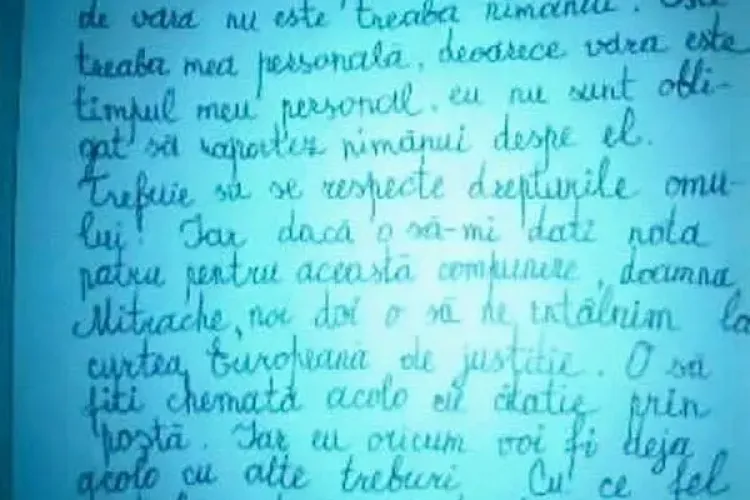 de vara nu este treaba nimănui. Este
treaba mea personală, deoarece vara este
timpul meu personal. eu nu sunt obli-
gat să raportez nimănui despe el.
Trefuie să se respecte drepturile omu-
lui! Iar dacă o să-mi dați nota
patru pentru această compunere, doamna
Mitrache, noi doi o să ne întâlnim la
curtea Europeană de justiție. O să
fiți chemată acolo cu citație prin
poștă. Iar eu oricum voi fi deja
acolo cu alte treburi. Cu ce fel